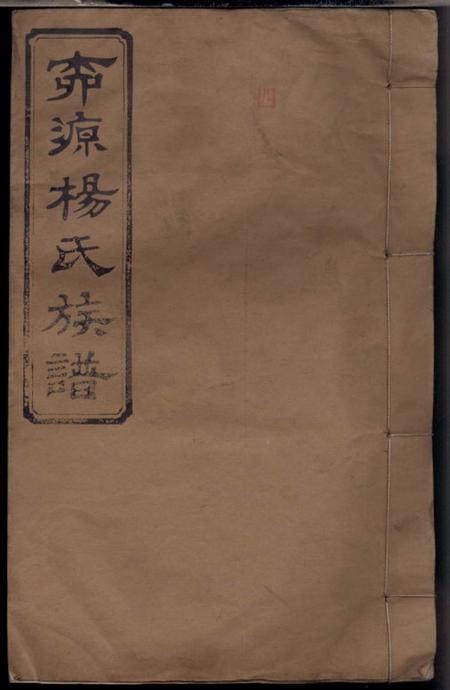 四
奅源楊氏族譜